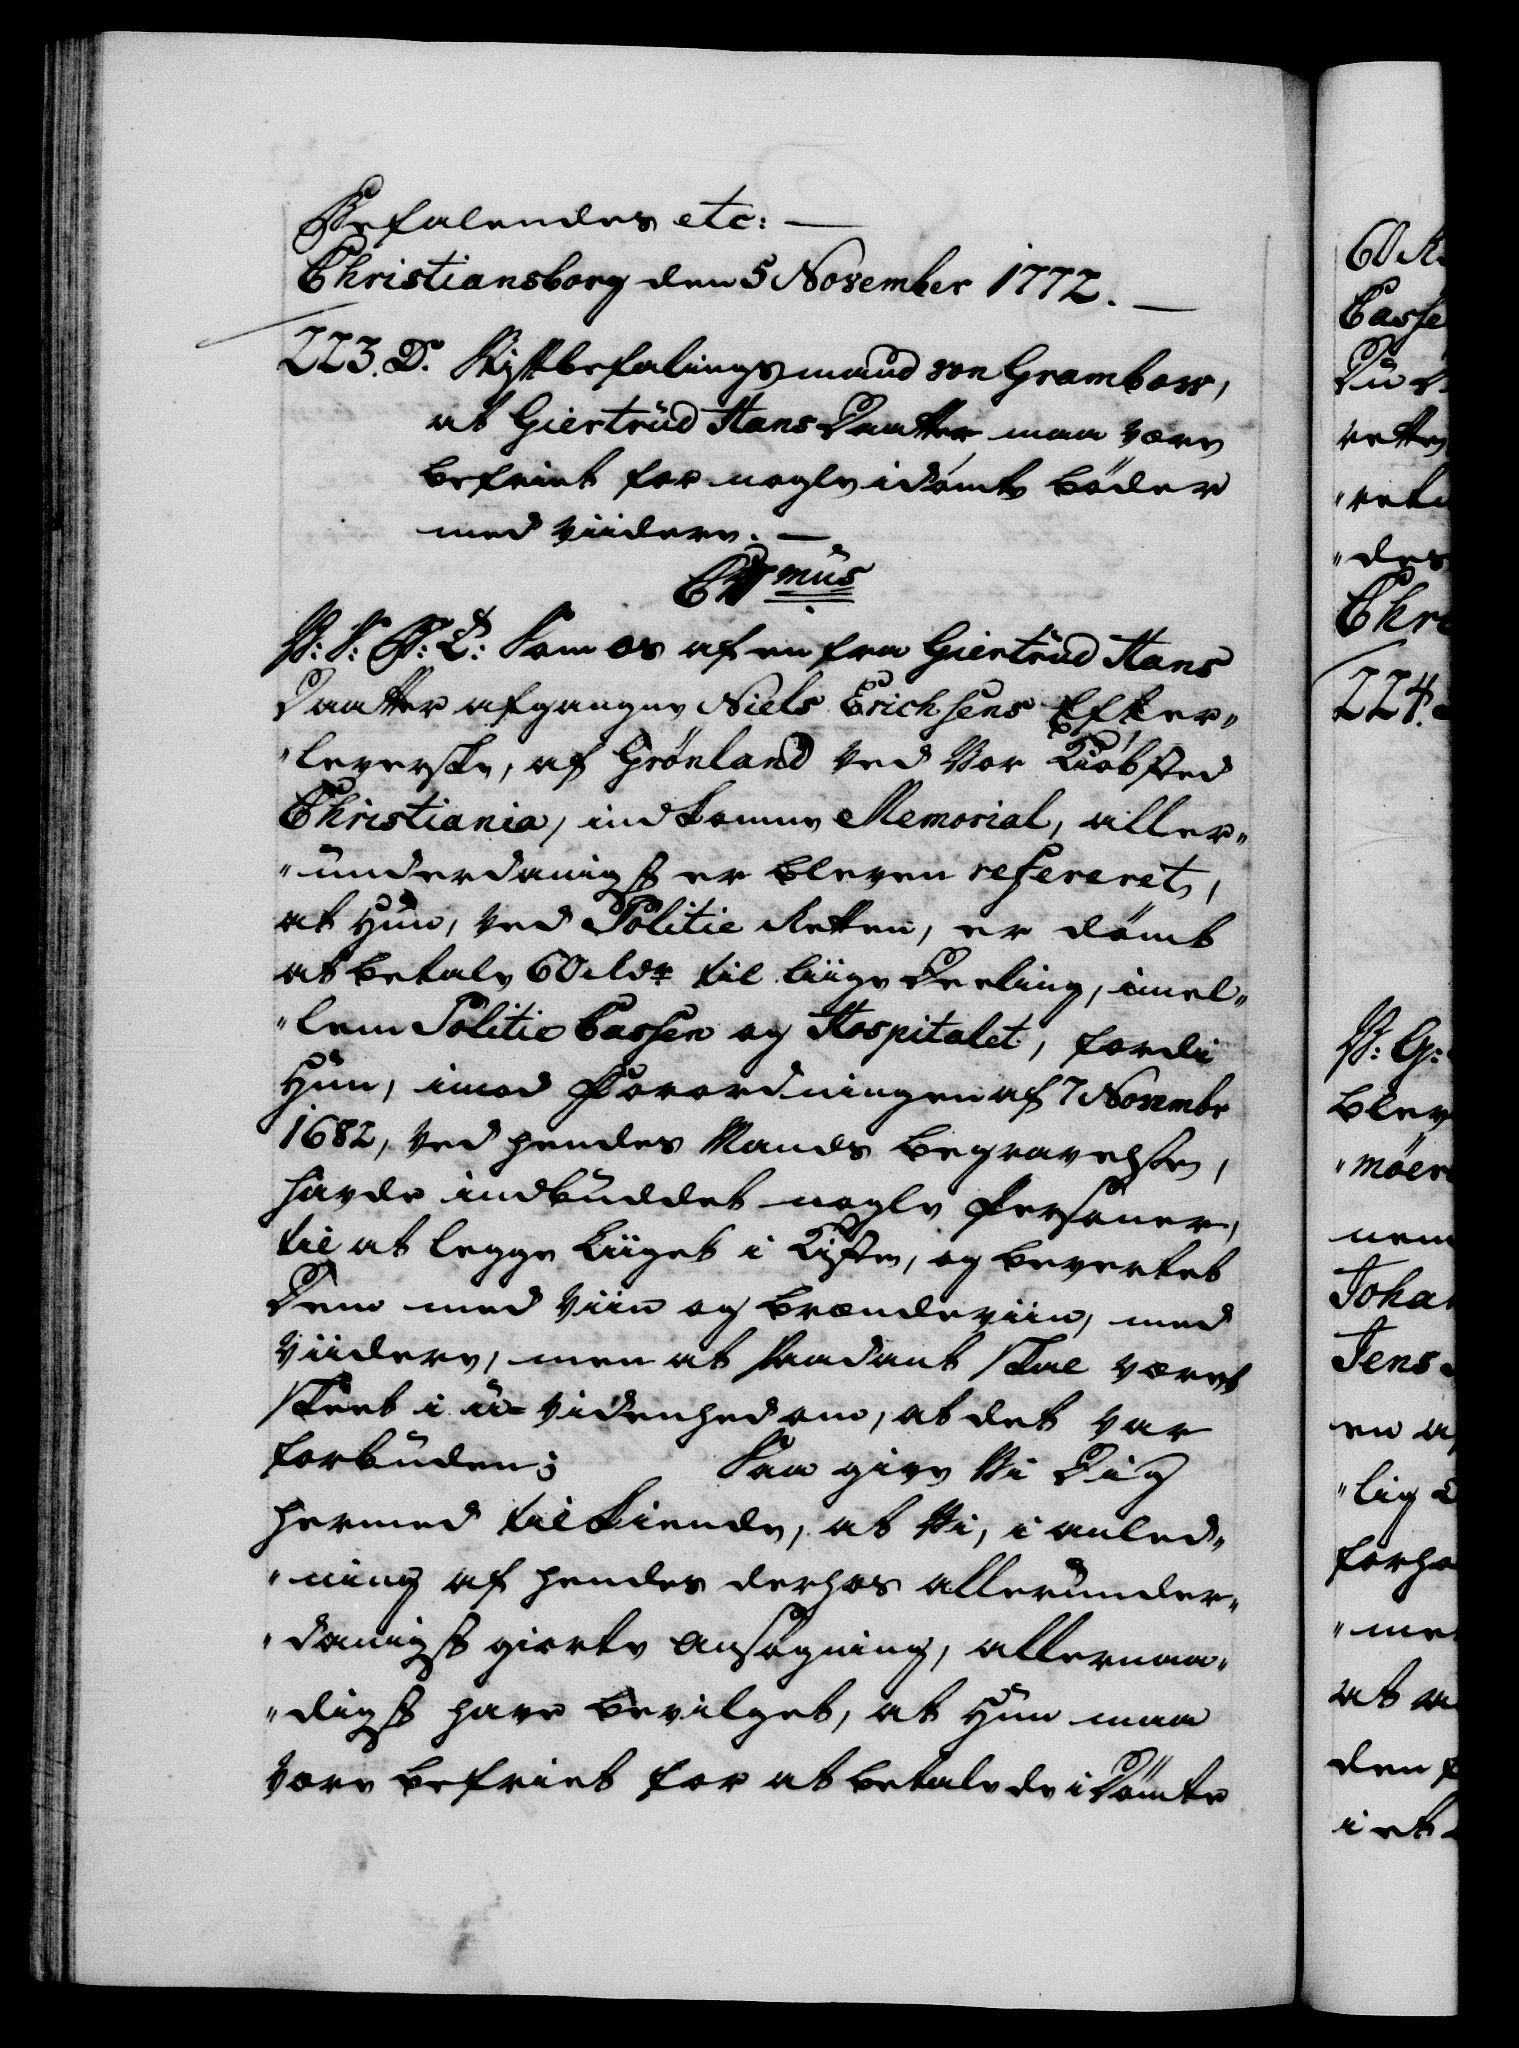 Befalendes etc: —
Christiansborg den 5 November 1772. —
223. D. Stiftbefalingsmand von Grambow,
at Giertrüd Hans Daatter maa være
befriet for nogle idömte böder
med viidere. —
C7mus
V: S: G: T: Som os af en fra Giertrüd Hans
Daatter afgangne Niels Erichsens Efter„
„leverske, af Grönland ved Vor Kiöbsted
Christiania, indkomne Memorial, aller„
„ünderdanigst er bleven refereret,
at Hün, ved Politie Retten, er dömt
at betale 60 Rdr til liige Deeling, imel„
„lem Politie Cassen og Hospitalet, fordi
Hün, imod Forordningen af 7 Novembr
1682, ved hendes Mands Begravelse,
havde indbüddet nogle Personer,
til at legge Liiget i Kisten, og bevertet
Dem med Viin og Brændeviin, med
Viidere, men at saadant skal været
skeet i ü-videnhed om, at det var
forbüden; Saa give Vi Dig
hermed tilkiende, at Vi, i anled„
„ning af hendes derhos alleründer„
„danigst giorte Ansögning, allernaa„
„digst have bevilget, at Hün maa
være befriet for at betale de idömte
60 R
Casse
Dü
rette
„ret
„des
Chri
224.
V: G:
blev
„möer
nem
Johan
Jens
en a
„lig
forho
„me
at
den
i et